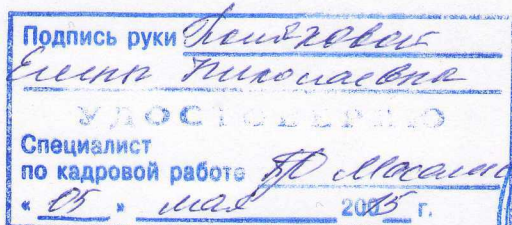 Подпись руки Поляховой
Елены Николаевна
УДОСТОВЕРЯЮ
Специалист
по кадровой работе
« 05 » мая 2005 г.